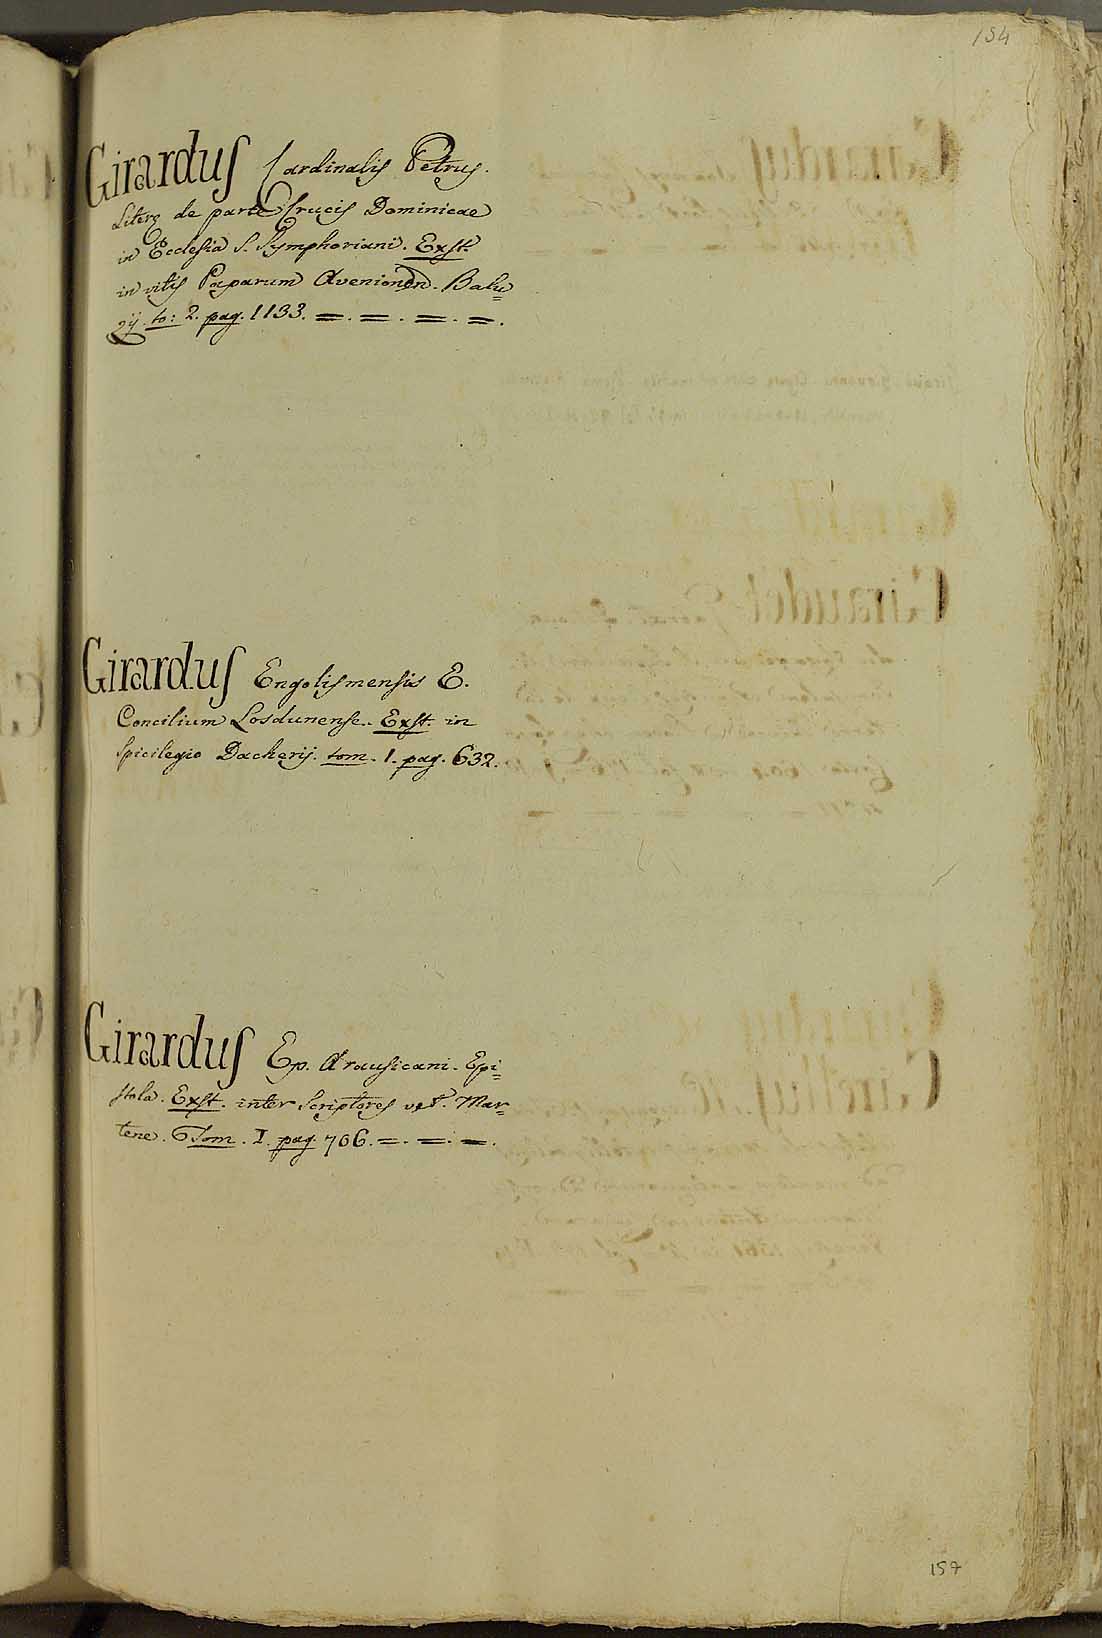 154
Girardus Cardinalis Petrus.
Literę de parte Crucis Dominicae
in Ecclesia S. Symphoriani. Exst.
in vitis Paparum Avenionen. Balu=
zij. to: 2. pag. 1133. =. =. =. =.
Girardus Engolismensis E.
Concilium Losdunense. Exst. in
Spicilegio Dacherij. tom. 1. pag. 632.
Girardus Ep. Arausicani. Epi=
stola. Exst. inter Scriptores vet. Mar=
tene. Tom. I. pag. 706. =. =. =.
157